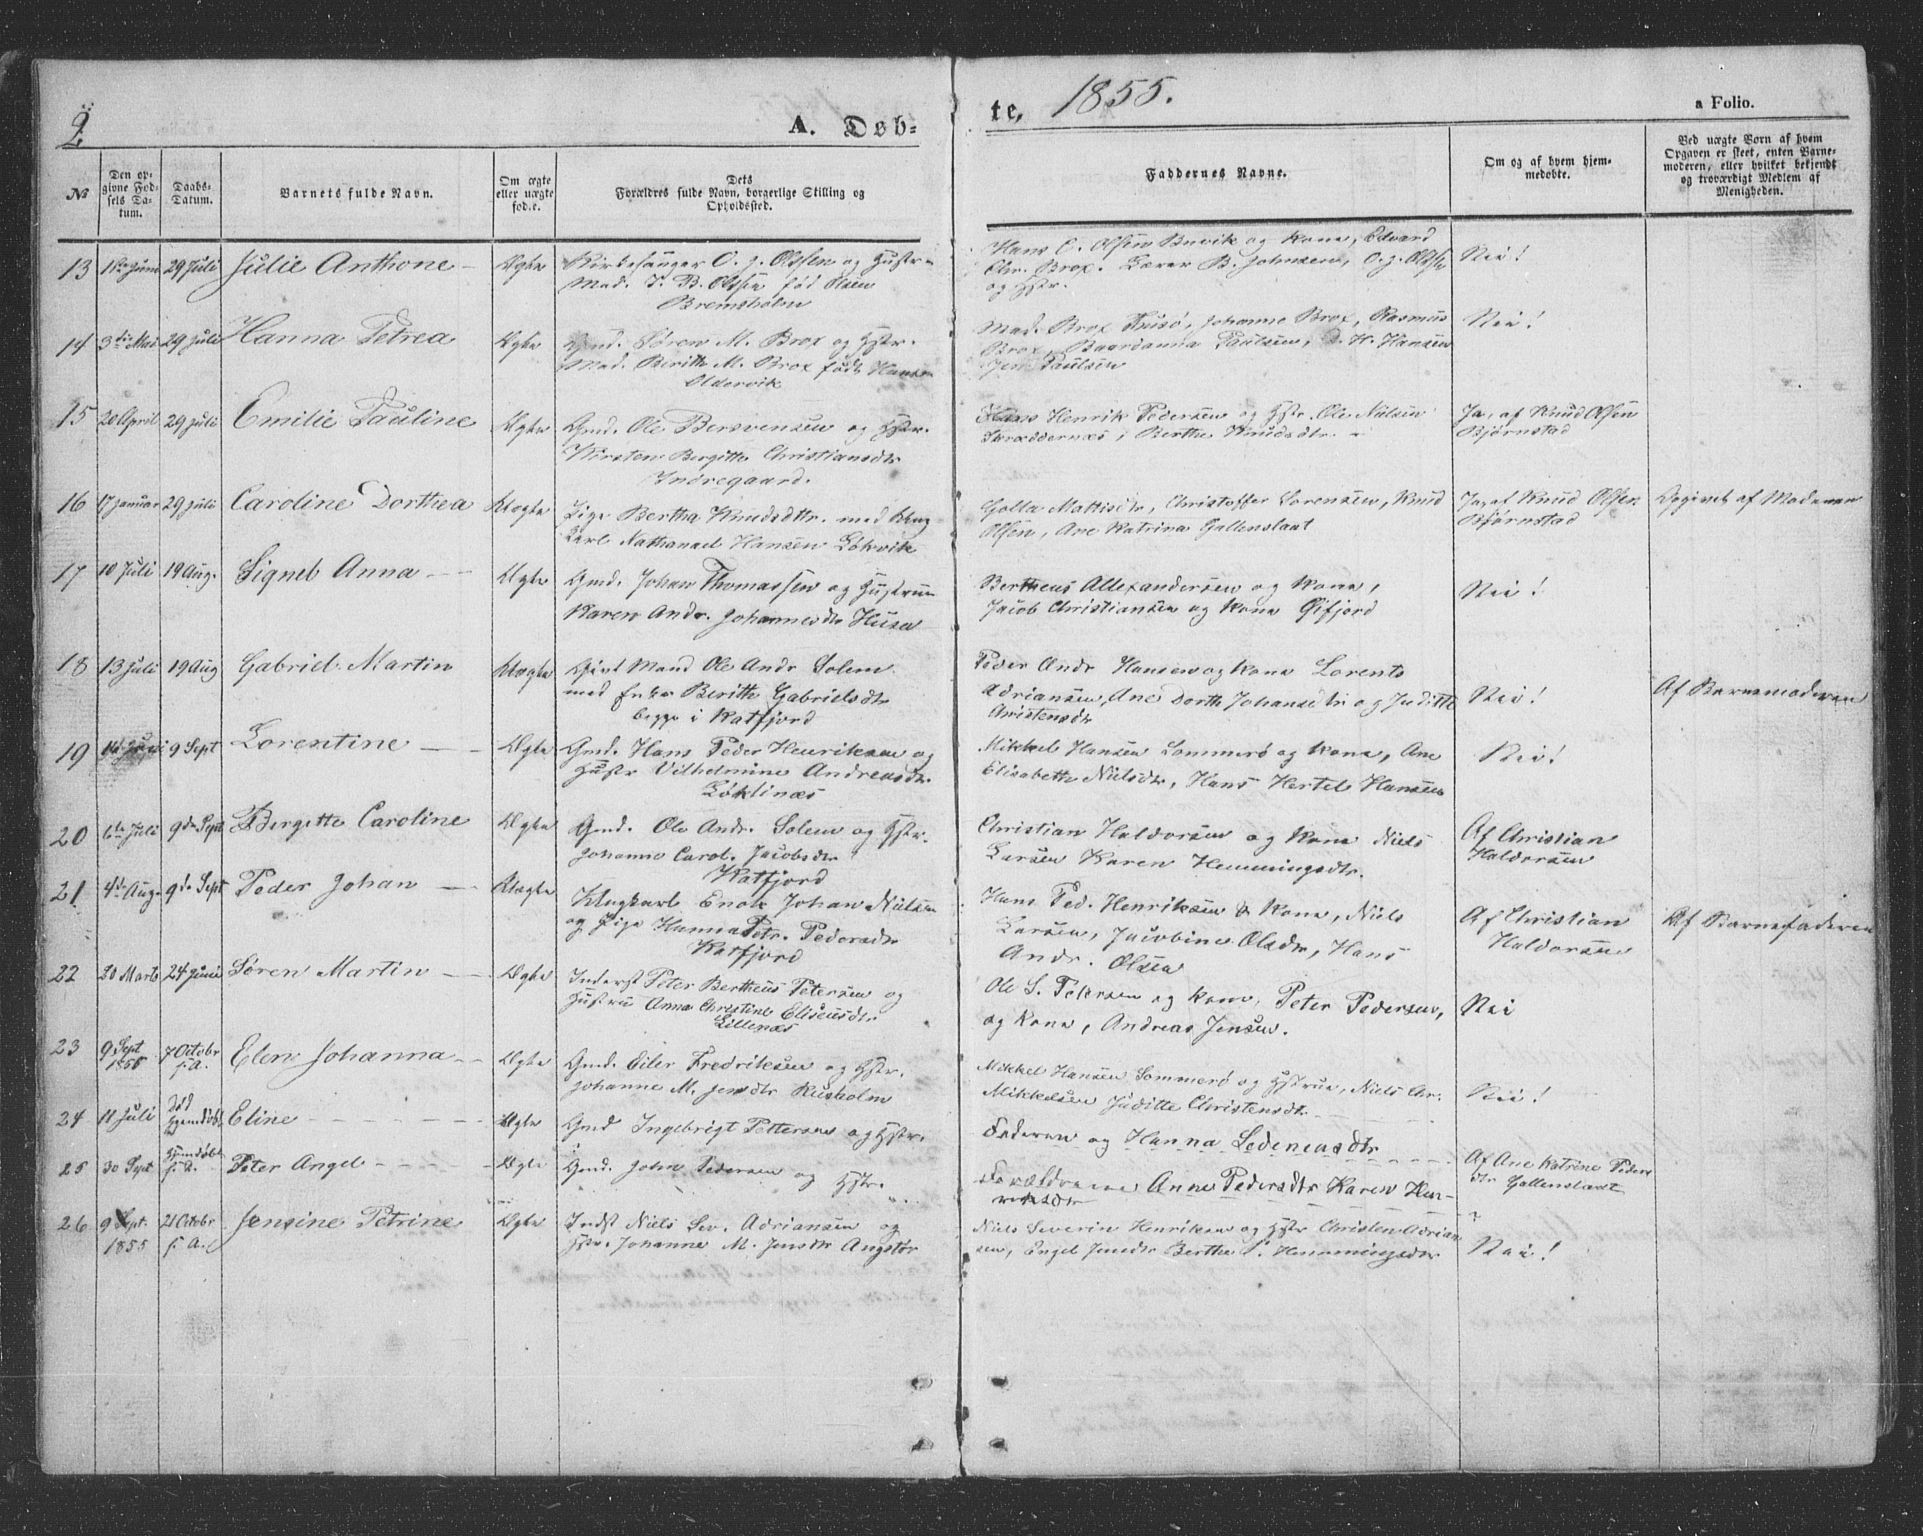 2
A. Døb-
te, 1855.
a Folio.
№
Den op-
givne Fød-
sels Da-
tum.
Daabs-
Datum.
Barnets fulde Navn.
Om ægte
eller uægte
fød.e.
Dets
Forældres fulde Navn, borgerlige Stilling og
Opholdssted.
Faddernes Navne.
Om og af hvem hjem-
medøbte.
Ved uægte Børn af hvem
Opgaven er skeet, enten Barne-
moderen, eller hvilket bekjendt
og troværdigt Medlem af
Menigheden.
13 11te Juni 29 Juli Julie Anthone Ægte Kirkesanger O. J. Olssen og Hustr.
Mad. J. B. Olssen fød Olsen
Bremsholm
Hans C. Olsen Buvik og Kone, Edvard
Chr. Brox. Lærer B. Johnsen, O. J. Olssen
og Hstr.
Nei!
14 3die Mai 29 Juli Hanna Petrea Ægte Gmd. Søren M. Brox og Hstr.
Mad. Berith M. Brox født Hansen
Oldervik
Mad. Brox Tusø, Johanne Brox, Rasmus
Brox, Paulsen, H. Hansen
Jens Paulsen
Nei!
15 20 April 29 Juli Emilie Pauline Ægte Gmd. Ole Bersvensen og Hstr.
Kirsten Bergitte Christiansdtr
Indregaard.
Hans Henrik Pedersen og Hstr. Ole Nilsen
Skreddernæs i Berthe Knudsdtr.
Ja, af Knud Olsen
Bjørnstad
16 17 Januar 29 Juli Caroline Dorthea Uægte Pige Bertha Knudsdttr. med Ung-
karl Nathanael Hansen Løkvik
Golla Mattisdtr, Christoffer Sorensen, Knud
Olsen, Ane Katrina Gallenslaat
Ja, af Knud Olsen
Bjørnstad
Opgivet af Moderen
17 10 Juli 19 Aug. Signeb Anna Ægte Gmd. Johan Thomassen og Hustrue
Karen Andr. Johannesdtr Husen
Bertheus Allexandersen og Kone,
Jacob Christiansen og Kone Gifjord
Nei!
18 13 Juli 19 Aug Gabriel Martin Uægte Gift Mand Ole Andr Solem
med Enke Berith Gabrielsdtr
begge i Katfjord
Peder Andr Hansen og Kone Lorents
Adriansen, Ane Dorth Johansdtr og Juditte
Christensdtr
Nei!
Af Barnemoderen
19 9 Sept Lorentine Ægte Gmd. Hans Peder Henriksen og
Hustr Vilhelmine Andreasdtr
Løklinæs
Mikkel Hansen Sommerø og Kone, Ane
Elisabeth Nielsdtr, Hans Hertel Hansen
Nei!
20 6te Juli 9de Sept Bergitte Caroline Ægte Gmd. Ole Andr. Solem og Hstr.
Johanne Carol. Jacobsdtr
Katfjord
Christian Haldorsen og Kone Niels
Larsen Karen Hemmingsdtr.
Af Christian
Haldorsen
21 4de Aug. 9de Sept Peder Johan Uægte Ungkarl Enok Johan Nielsen
og Pige Hanna Petr. Pedersdtr
Katfjord
Hans Ped. Henriksen & Kone, Niels
Larsen, Jacobine Olsdtr, Hans
Andr. Olsen
Af Christian
Haldorsen
Af Barnefaderen
22 20 Marts 24 Juni Søren Martin Ægte Inderst Peter Bertheus Petersen og
Hustru Anna Christine Eliseusdtr
Lillenæs
Ole S. Petersen og Kone, Peter Pedersen,
og Kone, Andreas Jensen.
Nei
23 9 Sept
1855 7 Octobr
s. A. Elen Johanna Ægte Gmd. Eiler Fredriksen og Hstr.
Johanne M. Jensdtr Rusholm
Mikkel Hansen Sommerø og Hstrue, Niels Chr.
Mikkelsen Juditte Christensdtr.
Nei!
24 11 Juli Død
Hjemdøbt Eline Ægte Gmd Ingebrigt Pettersen og Hstr.
Faderen og Hanna Ledeneasdtr
25 30 Sept Hjemdøbt
s. A. Peter Angel Ægte Gmd. John Pedersen og Hstr.
Forældrene Anne Pedersdtr Karen Hen-
riksdtr
Af Ane Katrine Peders
dtr Gallenslaat
26 9 Sept.
1855 21 Octobr
s. A. Jensine Petrine Ægte Indst Niels Sev. Adriansen og
Hstr. Johanne M. Jensdtr Angstør
Niels Severin Henriksen og Hstr Christen Adrian-
sen, Engel Jensdtr Berthe S. Hemmingsdtr
Nei!